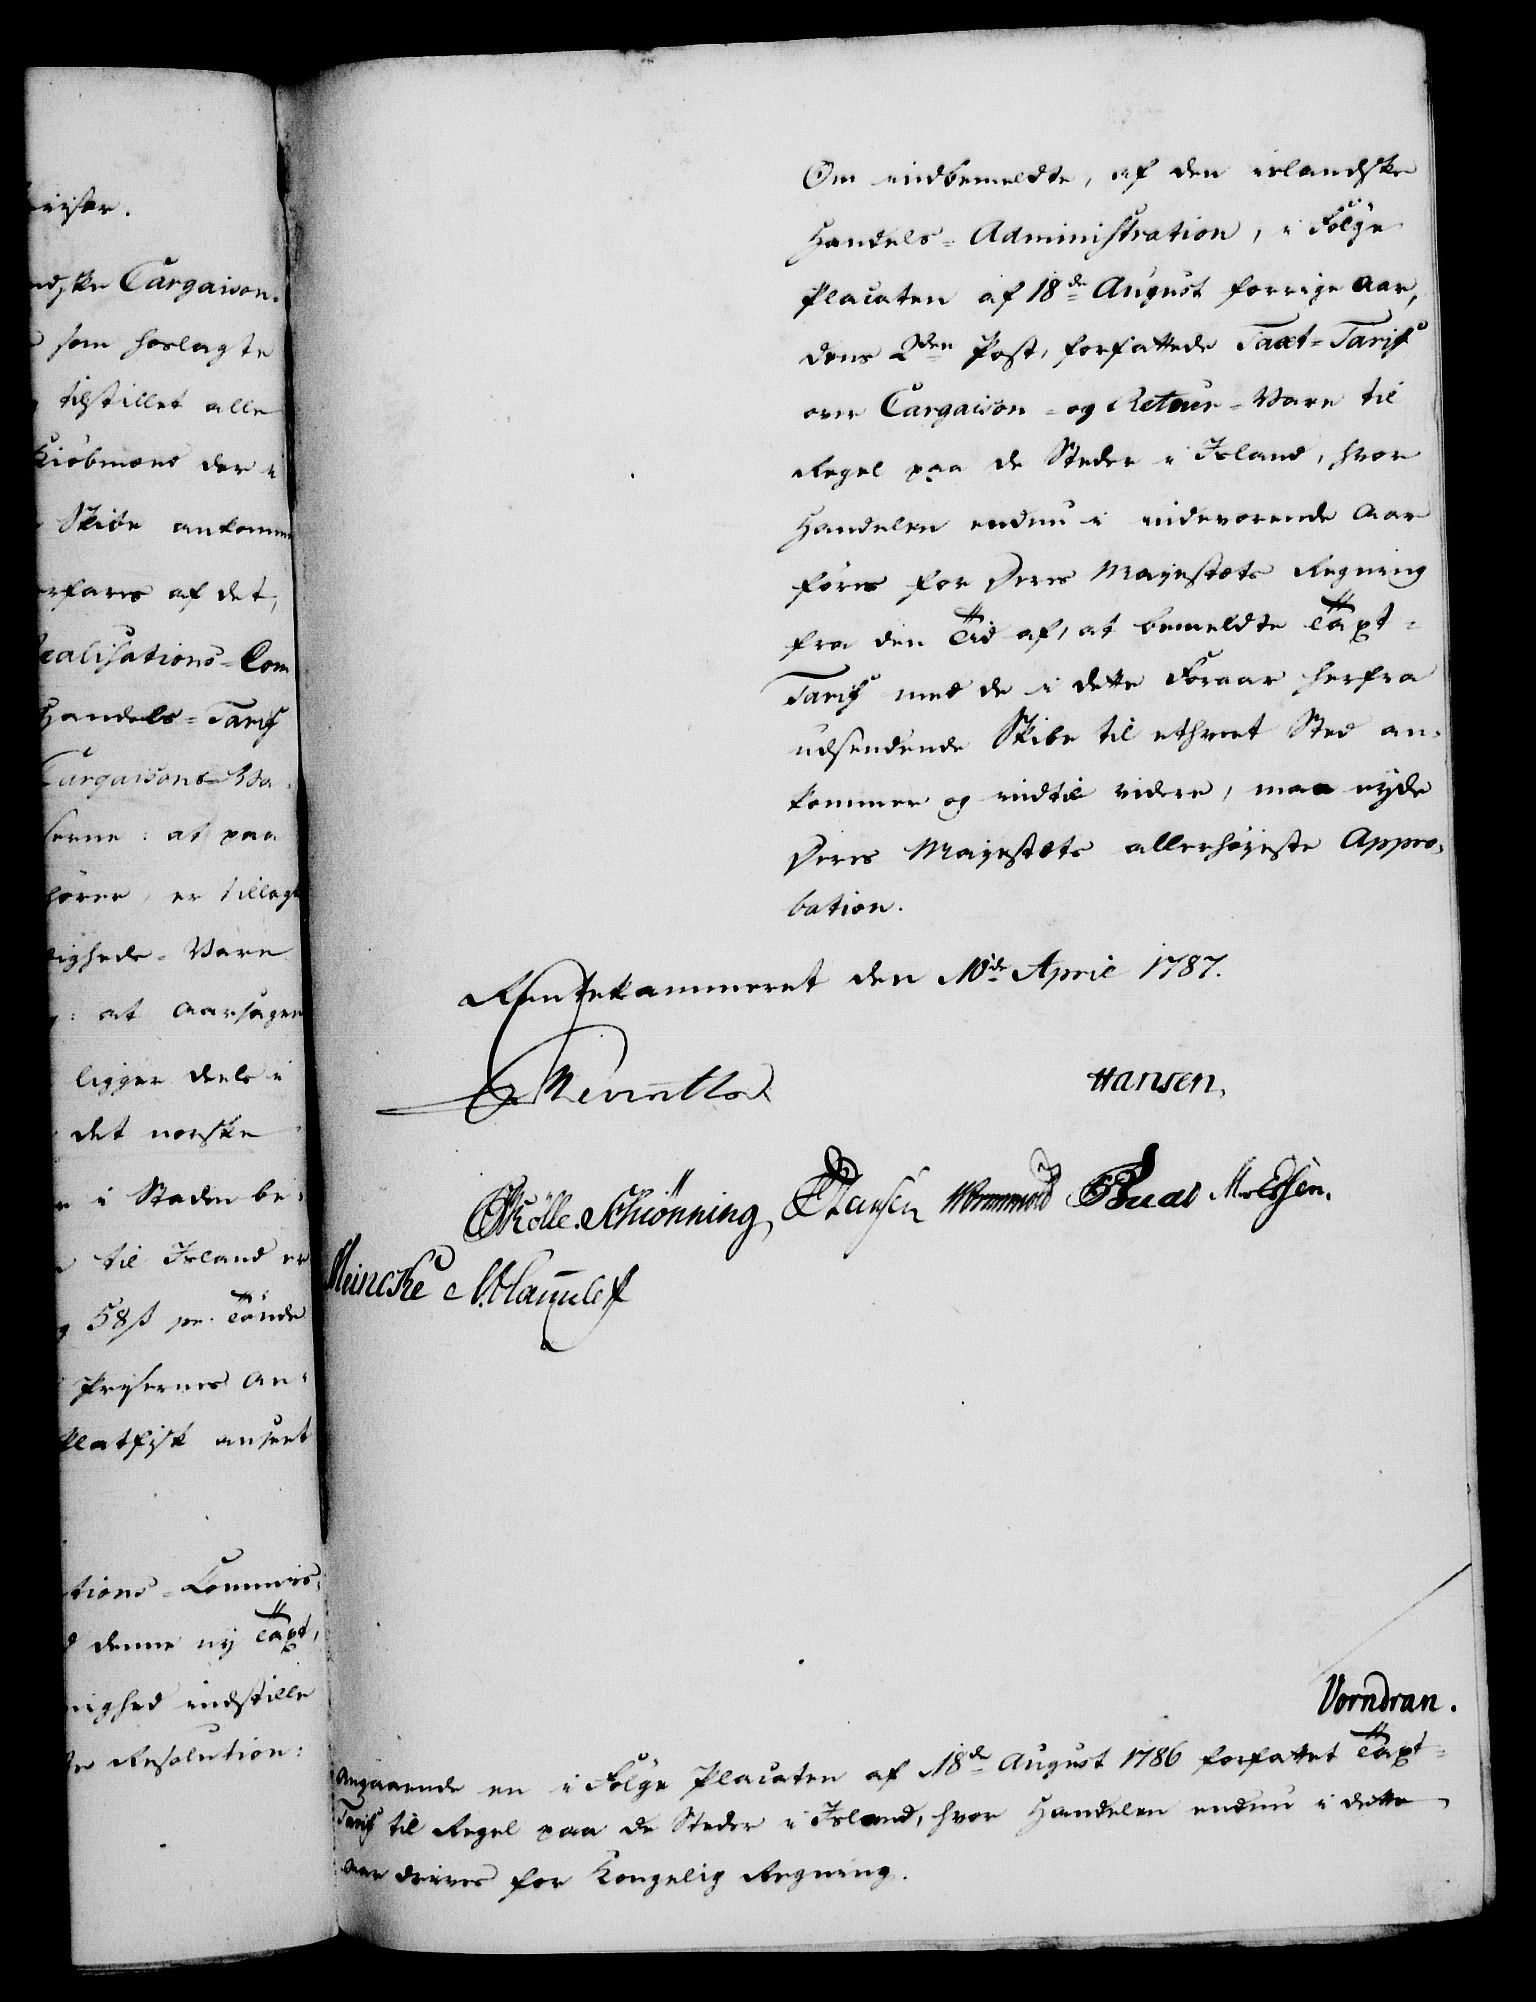 viser.
ndske Cargaison-
som hoslagte
tilstillet alle
Kiøbmænd der i
Skibe ankomme
erfares af det,
Realisations-Com
Handels-Tarif
Cargaisons-Va-
serne: at paa
hører, er tillagt
lighede-Vare
at Aarsagen
ligger deels i
det norske
i Staden be-
til Island er
58 ß pr. Tønde
Prisernes An-
Platfisk anseet
tions-Commis-
denne ny Taxt,
righed indstille
Resolution:
Om indbemeldte, af den islandske
Handels-Administration, i Følge
Placaten af 18de August forrige Aar,
dens 2den Post, forfattede Taxt-Tarif
over Cargaison- og Retour-Vare til
Regel paa de Steder i Island, hvor
Handelen endnu i indeværende Aar
føres for Deres Majestæts Regning
fra den Tid af, at bemeldte Taxt-
Tarif med de i dette Foraar herfra
udsendende Skibe til ethvert Sted an-
kommer og indtil videre, maa nyde
Deres Majestæts allerhøjeste Appro-
bation.
Rentekammeret den 10de April 1787.
Reventlow
Hansen.
Schiønning,
Meincke
Vorndran.
Angaaende en i Følge Placaten af 18de August 1786 forfattet Taxt-
Tarif til Regel paa de Steder i Island, hvor Handelen endnu i dette
Aar drives for Kongelig Regning.